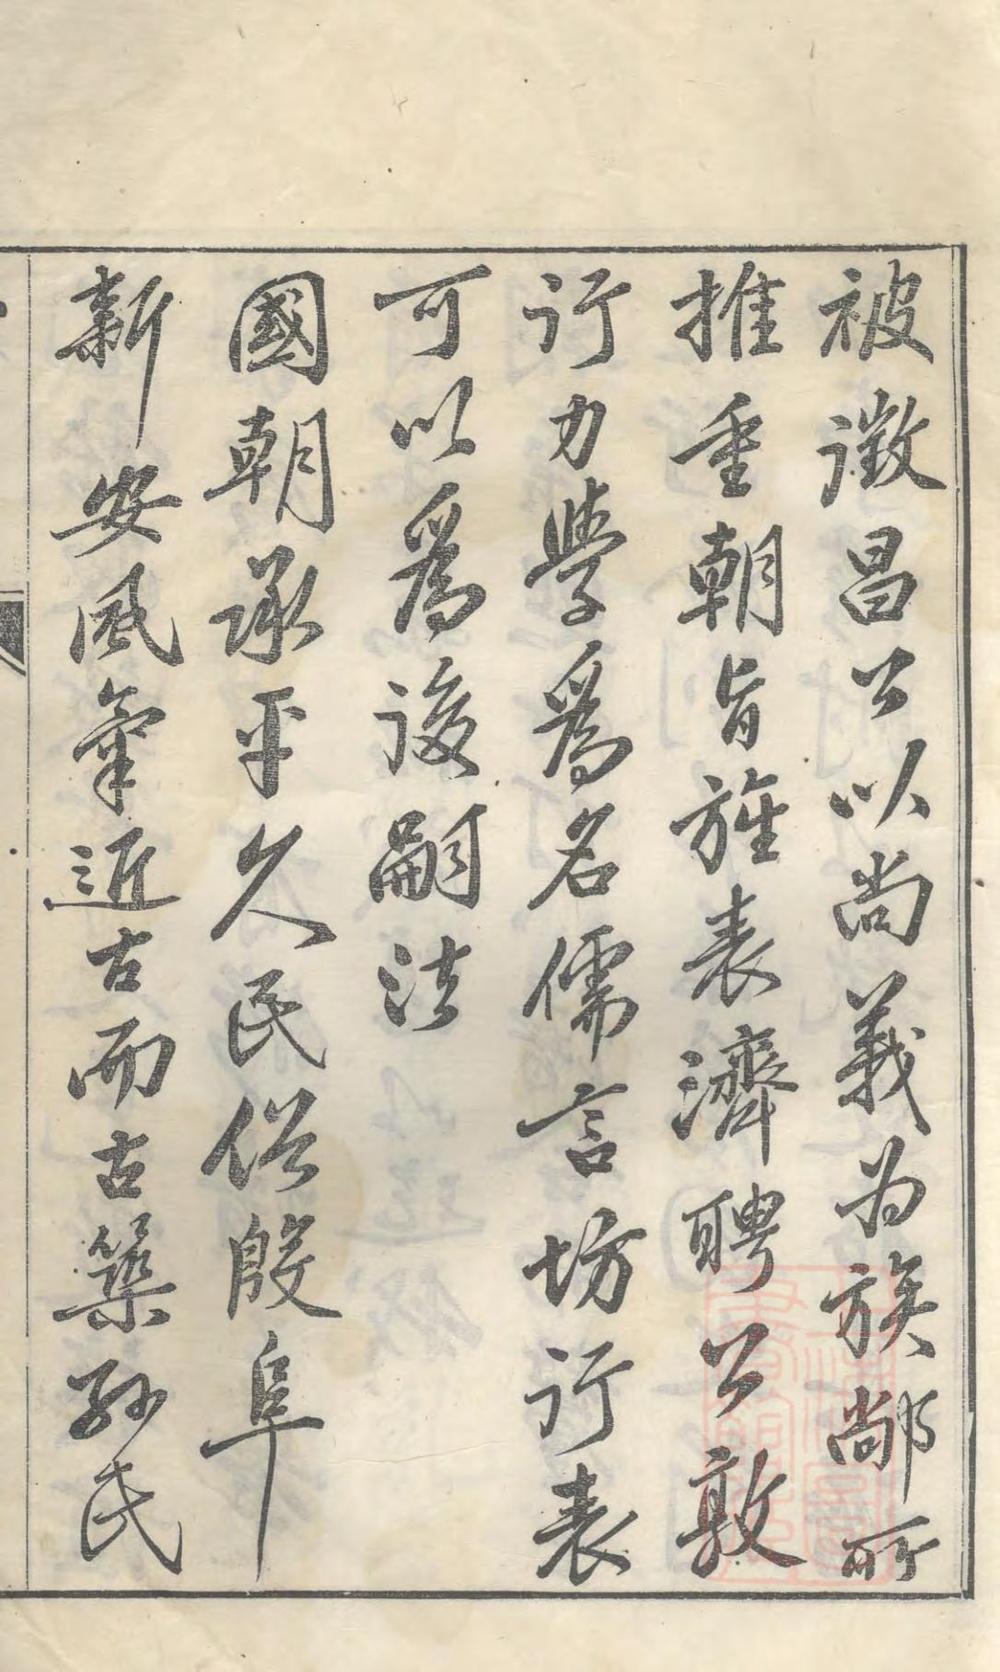 被徵昌公以尚義为族鄉所
推重朝旨旌表濟聘公敦
行力學爲名儒言坊行表
可以爲後嗣法
國朝承平久民俗殷阜
新安風氣近古而古築孙氏